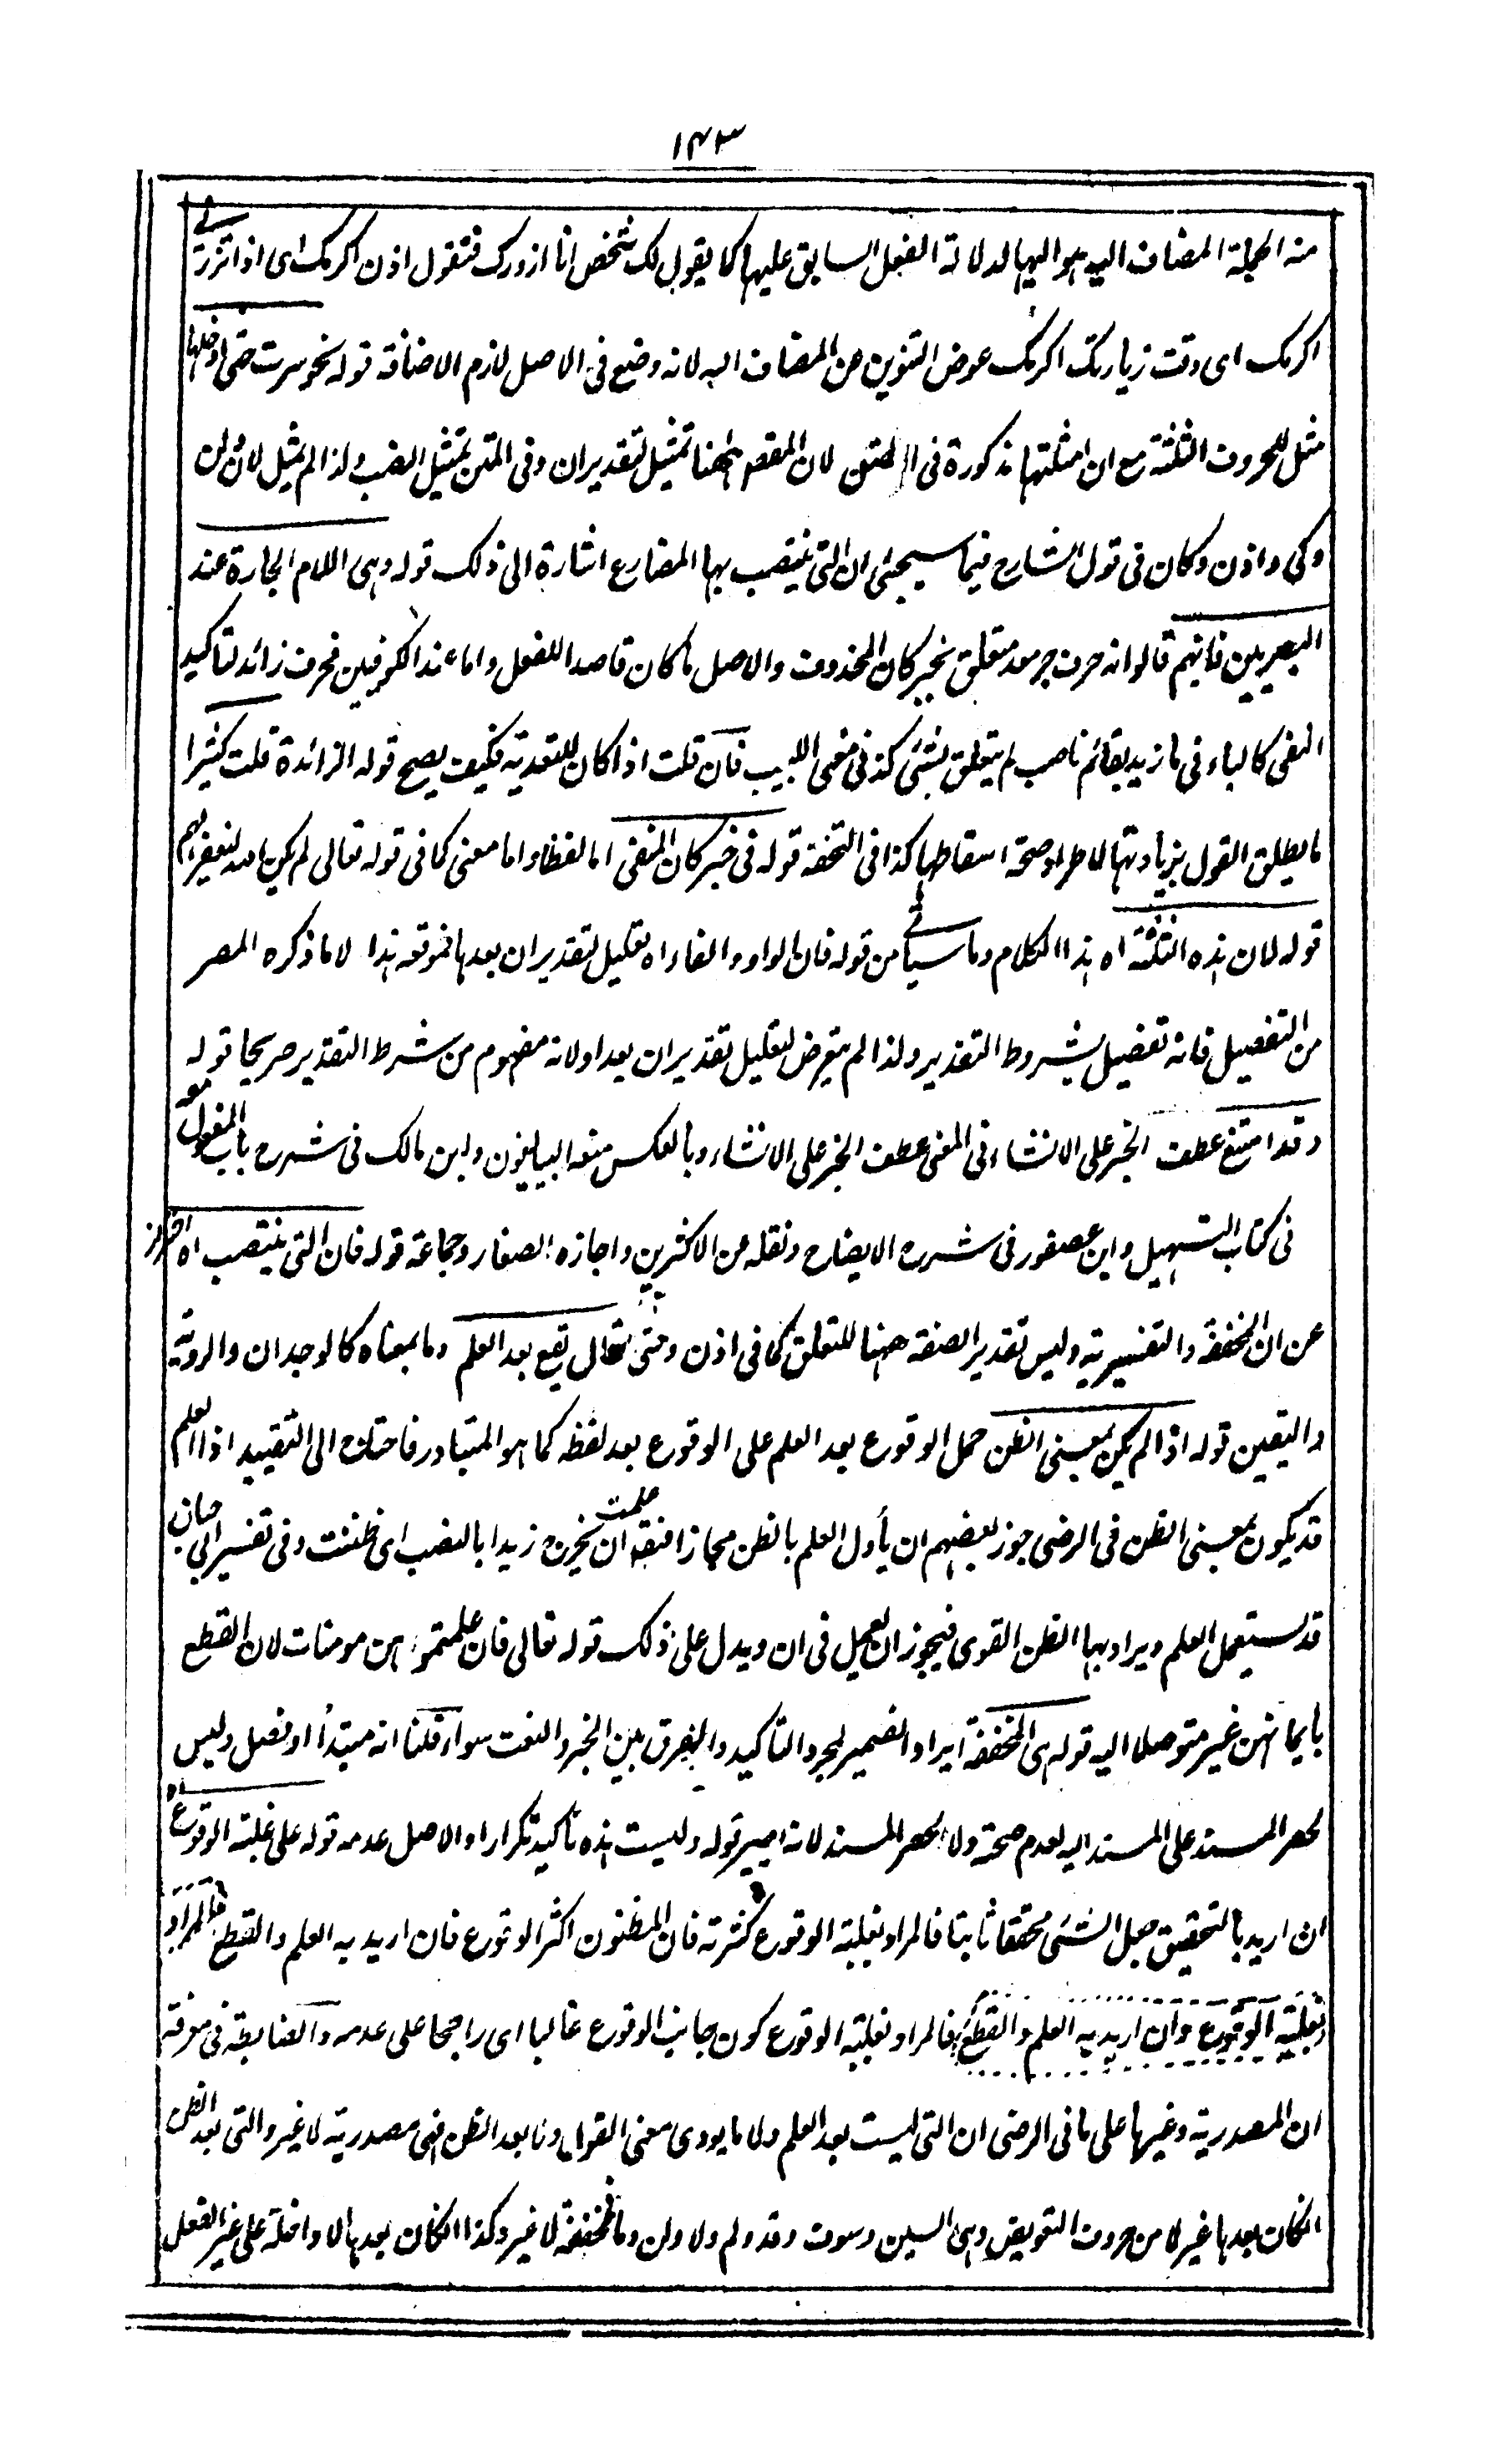 ١٤٣
منه الجملة المضاف اليه هو اليها لدلالة الفعل السابق عليها كما يقول لك شخص انا ازورك فتقول اذن اكرمك اى اذ تزرنى
اكرمك اى وقت زيارتك اكرمك عوض التنوين عن المضاف اليه لانه وضع فى الاصل لازم الاضافة قوله نحو سرت حتى ادخلها
مثل للحروف الثلثة مع ان امثلتها مذكورة فى المتن لان المقصود ههنا تمثيل لتقدير ان وفى المتن تمثيل النصب ولذا لم يمثل لان ولن
وكى واذن وكان فى قول الشارح فيما سيجئى ان التى ينتصب بها المضارع اشارة الى ذلك قوله وهى اللام الجارة عند
البصريين فانهم قالوا انه حرف جر معد متعلق بخبر كان المحذوف والاصل ما كان قاصدا للفعل واما عند الكوفيين فحرف زائد لتاكيد
النفى كالباء فى ما زيد بقائم ناصب لم يتعلق بشئ كذ فى مغنى اللبيب فان قلت اذا كان للتعدية فكيف يصح قوله الزائدة قلت كثيرا
ما يطلق القول بزيادتها لاطراد صحة اسقاطها كذا فى التحفة قوله فى خبر كان المنفى اما لفظا واما معنى كما فى قوله تعالى لم يكن الله ليغفر لهم
قوله لان هذه الثلثة اه هذا الكلام وما سياتى من قوله فان الواو والفاء اه تعليل لتقدير ان بعدها فموقعه هذا لا ما ذكره المصر
من التفصيل فانه تفصيل بشروط التقدير ولذا لم يتعرض لتعليل تقدير ان بعد او لانه مفهوم من شرط التقدير صريحا قوله
وقد امتنع عطف الخبر على الانشاء فى المغنى عطف الخبر على الانشاء وبالعكس منعه البيانيون وابن مالك فى شرح باب المفعول معه
فى كتاب التسهيل وابن عصفور فى شرح الايضاح ونقله عن الاكثرين واجازه الصفار وجماعة قوله فان التى ينتصب اه احتراز
عن ان المخففة والتفسيرية وليس تقدير الصفة ههنا للتعلق كما فى اذن وحتى تقال يقع بعد العلم وما بمعناه كالوجدان والروية
واليقين قوله اذا لم يكن بمعنى الظن حمل الوقوع بعد العلم على الوقوع بعد لفظه كما هو المتبادر فاحتاج الى التقييد اذ العلم
قد يكون بمعنى الظن فى الرضى جوز بعضهم ان يأول العلم بالظن مجازا فنقو علمت ان يخرج زيدا بالنصب اى ظننت وفى تفسير ابى حيان
قد يستعمل العلم ويراد بها الظن القوى فيجوز ان يعمل فى ان ويدل على ذلك قوله تعالى فان علمتموهن مومنات لان القطع
بايمانهن غير متوصلا اليه قوله هى المخففة ايراد الضمير لمجرد التاكيد والفرق بين الخبر والنعت سواء قلنا انه مبتدأ او فصل وليس
لحصر المسند على المسند اليه لعدم صحته ولا لحصر المسند لانه قوله وليست هذه تأكيد تكرارا والاصل عدمه قوله على غلبة الوقوع اه
ان اريد بالتحقيق جعل الشئ محققا ثابتا فالمراد بغلبة الوقوع كثرته فان المظنون اكثر الوقوع فان اريد به العلم والقطع فالمراد
بغلبة الوقوع وان اريد به العلم والقطع فالمراد بغلبة الوقوع كون جانب الوقوع غالبا اى راجحا على عدمه والضابطة فى معرفة
ان المصدرية وغيرها على ما فى الرضى ان التى ليست بعد العلم ولا ما يودى معنى القول ولا بعد الظن فهى مصدرية لا غير والتى بعد الظن
الكان بعدها غير لا من حروف التعويض وهى السين وسوف وقد ولم ولا ولن وما فمخففة لا غير وكذا الكان بعدها لا داخلة على غير الفعل